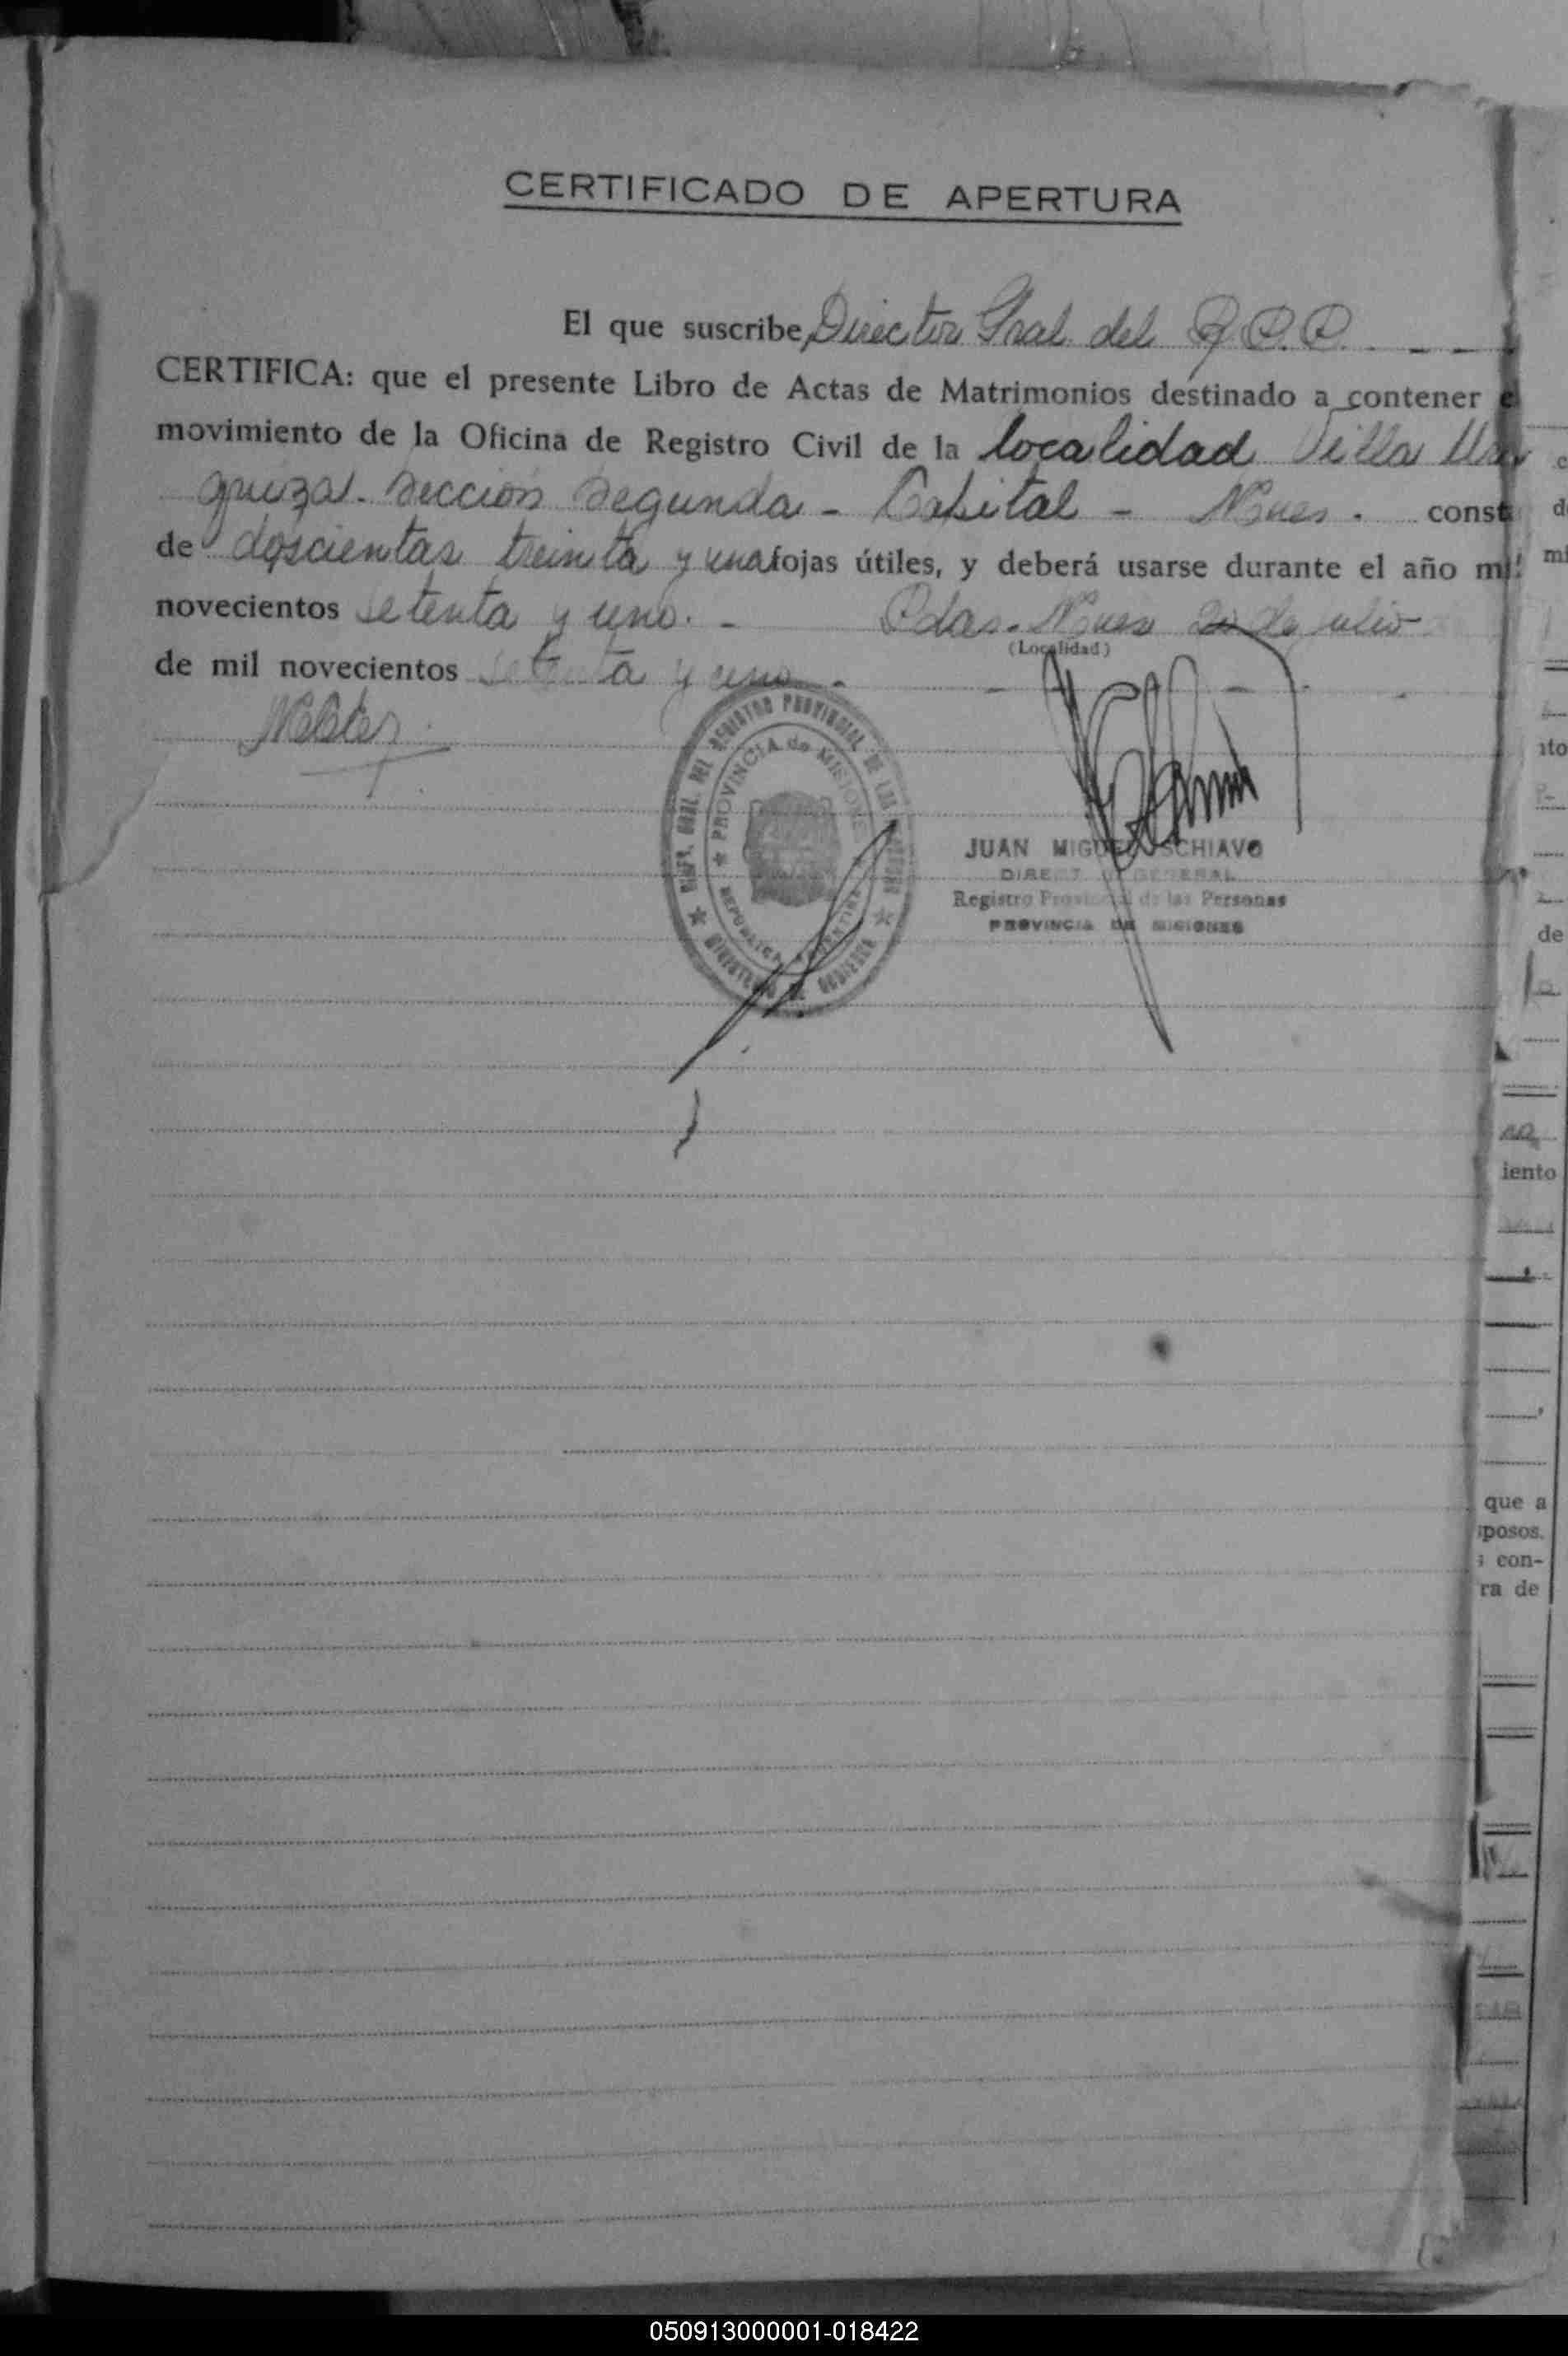 CERTIFICADO DE APERTURA
El que suscribe, Director Gral. del R.P.P.
CERTIFICA: que el presente Libro de Actas de Matrimonios destinado a contener el
movimiento de la Oficina de Registro Civil de la localidad Villa Ur
quiza. Sección Segunda - Capital - Mnes. const
de doscientas treinta y una fojas útiles, y deberá usarse durante el año mil
novecientos setenta y uno. - Pdas. Mnes 20 de julio
(Localidad)
de mil novecientos setenta y uno -
DIREC. GRAL. DEL REGISTRO PROVINCIAL DE LAS PERSONAS
PROVINCIA de MISIONES
REPUBLICA ARGENTINA
MINISTERIO DE GOBIERNO
JUAN MIGUEL SCHIAVO
DIRECTOR GENERAL
Registro Provincial de las Personas
PROVINCIA DE MISIONES
de
iento
que a
posos.
con-
ra de
050913000001-018422